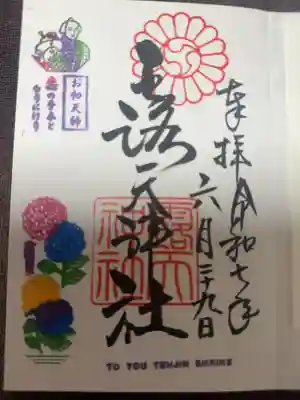 奉拝 令和七年
六月二十九日
露天神社
露天
神社
お初天神
恋の手本と
なりにけり
TO YOU TENJIN SHRINE